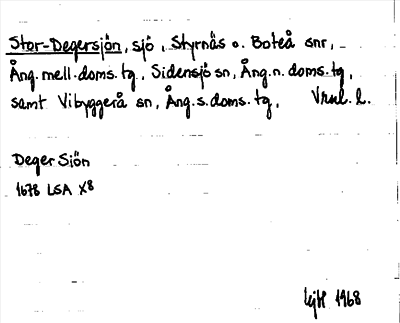 Stor-Degersjön, sjö, Styrnäs o. Boteå snr,
Ång. mell. doms. tg., Sidensjö sn, Ång. n. doms. tg,
samt Vibyggerå sn, Ång. s. doms. tg, Vnl. l.
Deger Siön
1678 LSA X8
1968